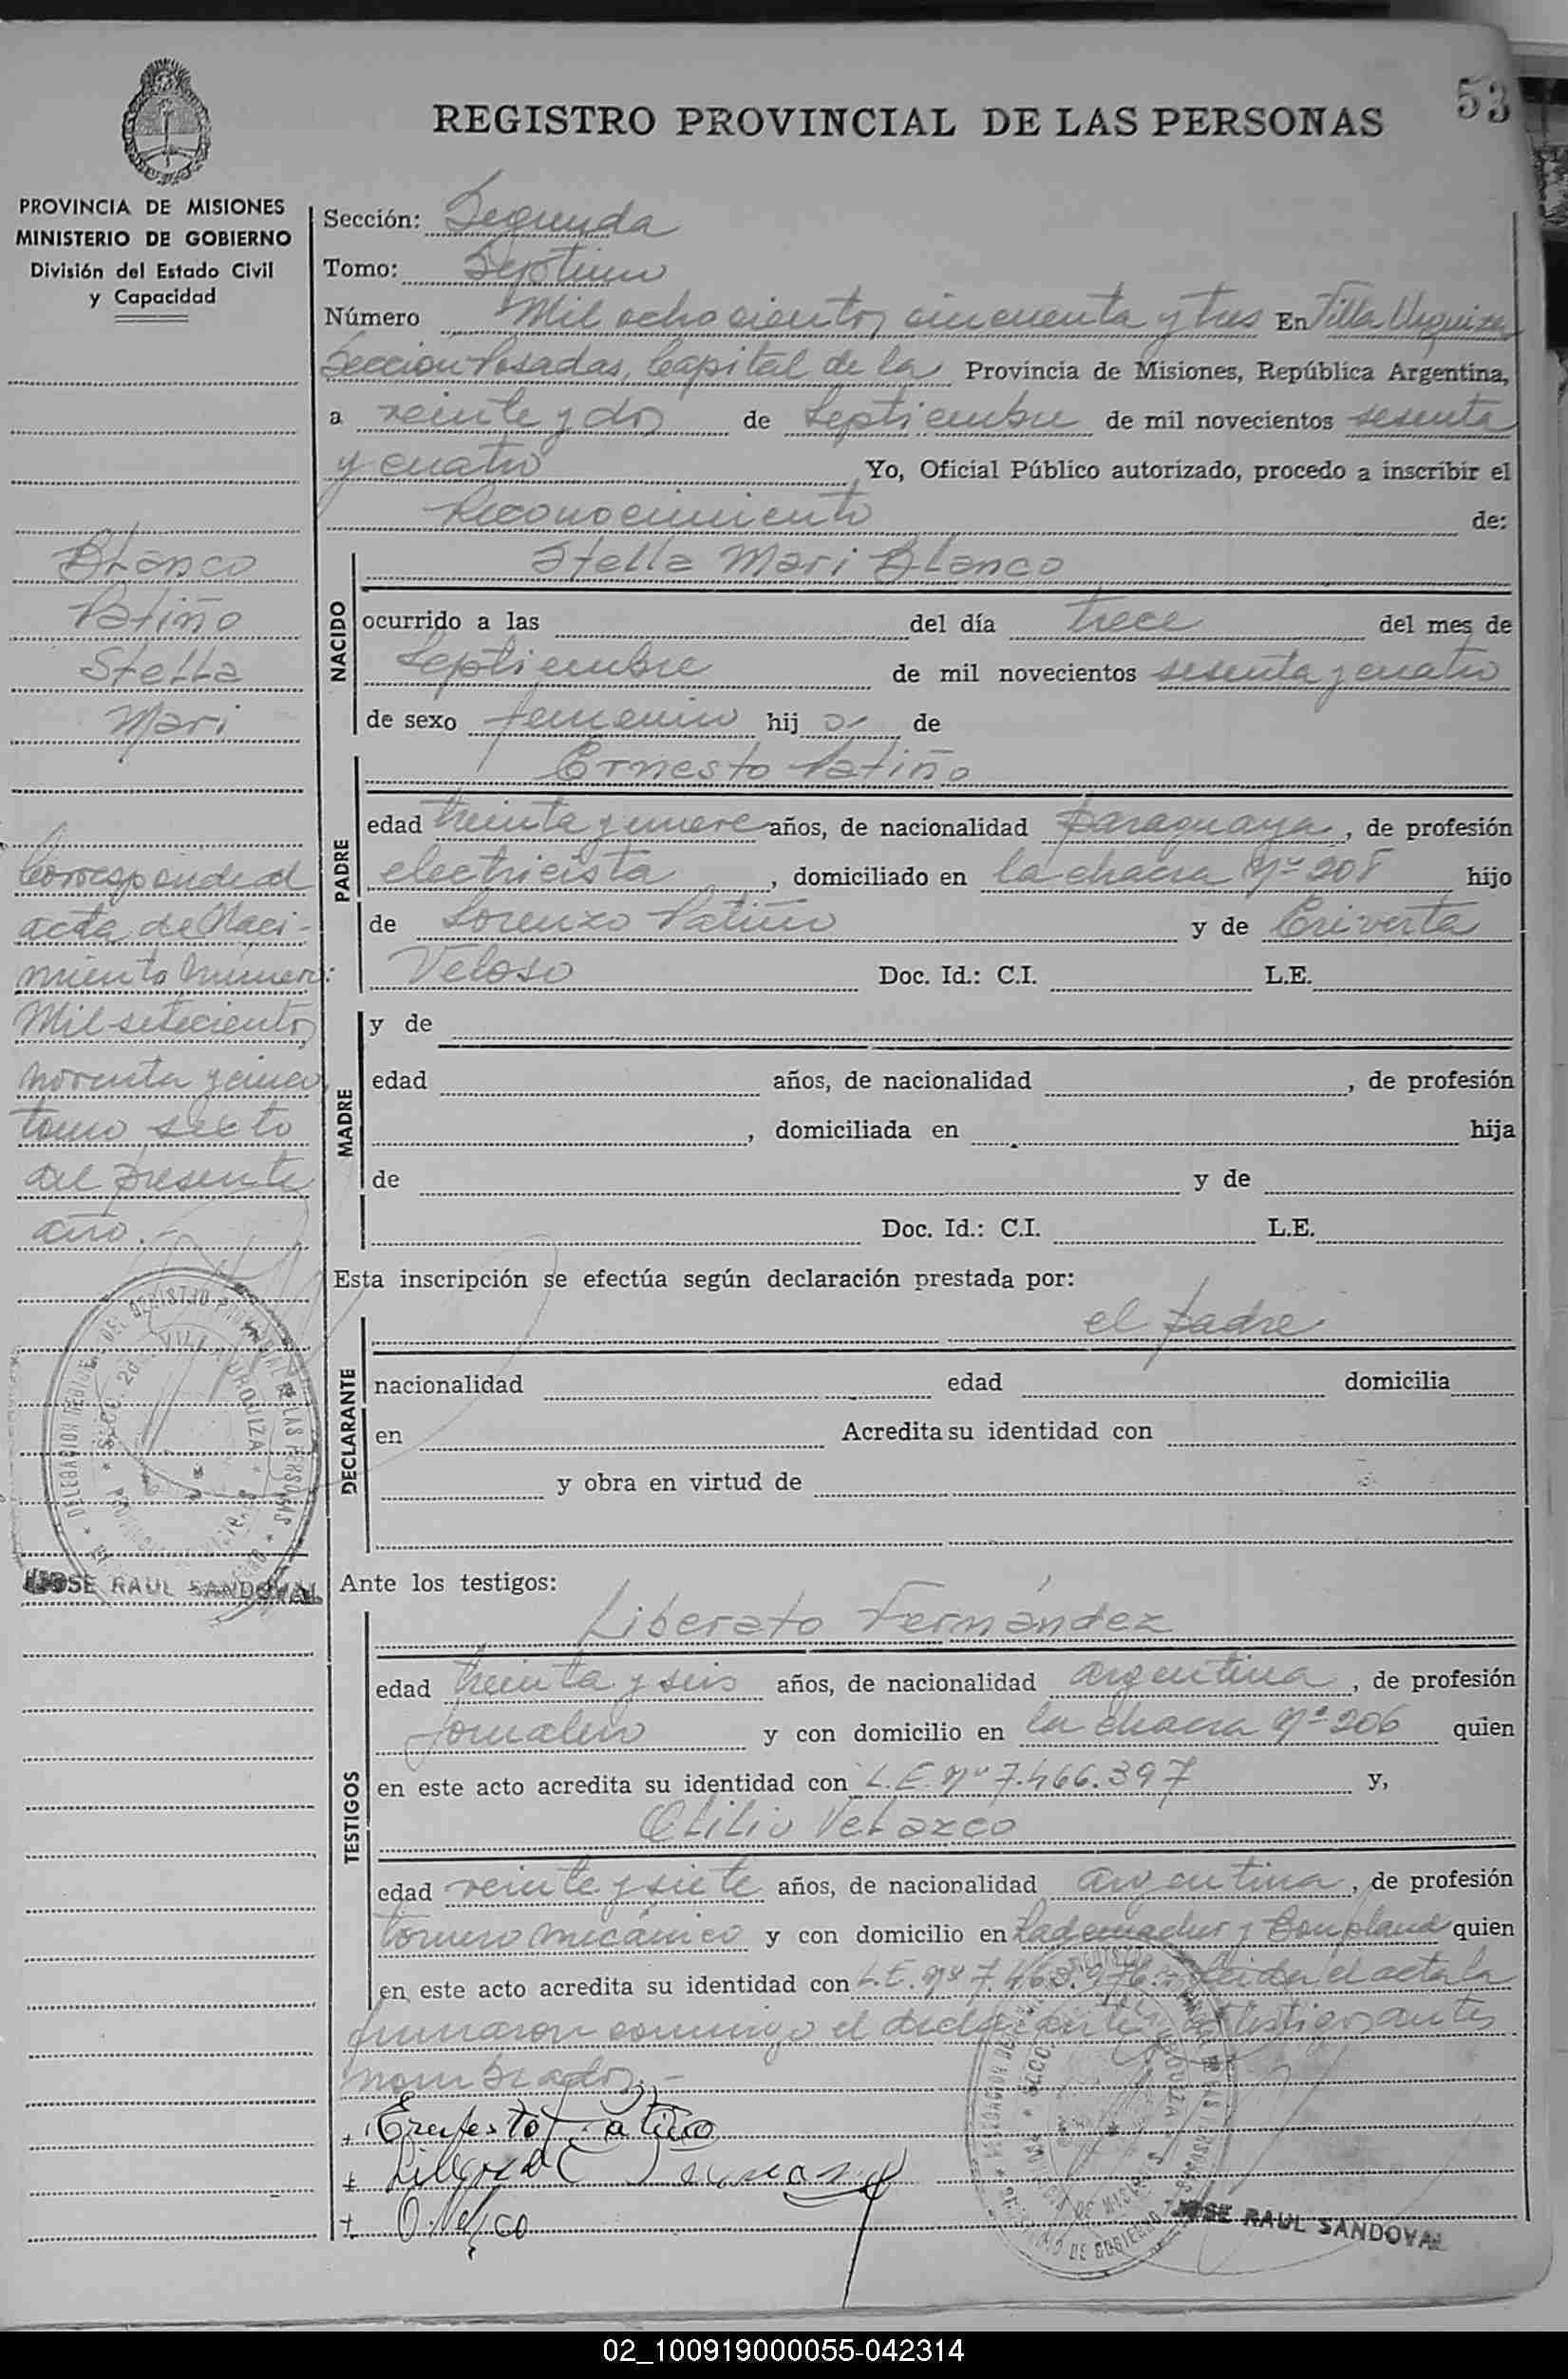 53
REGISTRO PROVINCIAL DE LAS PERSONAS
PROVINCIA DE MISIONES
MINISTERIO DE GOBIERNO
División del Estado Civil
y Capacidad
Blanco
Patiño
Stella
Mari
Corresponde al
acta de Naci-
miento número:
Mil setecientos
noventa y cinco
tomo sexto
del presente
año.-
JOSE RAUL SANDOVAL
Sección: Segunda
Tomo: Septimo
Número Mil ochocientos cincuenta y tres En Villa Urquiza
Sección Posadas, Capital de la Provincia de Misiones, República Argentina,
a veinte y dos de Septiembre de mil novecientos sesenta
y cuatro Yo, Oficial Público autorizado, procedo a inscribir el
Reconocimiento de:
NACIDO
Stella Mari Blanco
ocurrido a las del día trece del mes de
Septiembre de mil novecientos sesenta y cuatro
de sexo femenino hij a de
PADRE
Ernesto Patiño
edad treinta y nueve años, de nacionalidad paraguaya, de profesión
electricista, domiciliado en la chacra Nº 208 hijo
de Lorenzo Patiño y de Eriverta
Veloso Doc. Id.: C.I. L.E.
MADRE
y de
edad años, de nacionalidad , de profesión
, domiciliada en hija
de y de
Doc. Id.: C.I. L.E.
Esta inscripción se efectúa según declaración prestada por:
DECLARANTE
el padre
nacionalidad edad domicilia
en Acredita su identidad con
y obra en virtud de
Ante los testigos:
TESTIGOS
Liberato Fernández
edad treinta y seis años, de nacionalidad argentina, de profesión
jornalero y con domicilio en la chacra Nº 206 quien
en este acto acredita su identidad con L.E. Nº 7.466.397 y,
Otilio Velazco
edad veinte y siete años, de nacionalidad argentina, de profesión
tornero mecánico y con domicilio en Rademacher y Bonpland quien
en este acto acredita su identidad con L.E. Nº 7. Leida el acta la
firmaron conmigo el declarante y testigos antes
nombrados.-
JOSE RAUL SANDOVAL
02_100919000055-042314